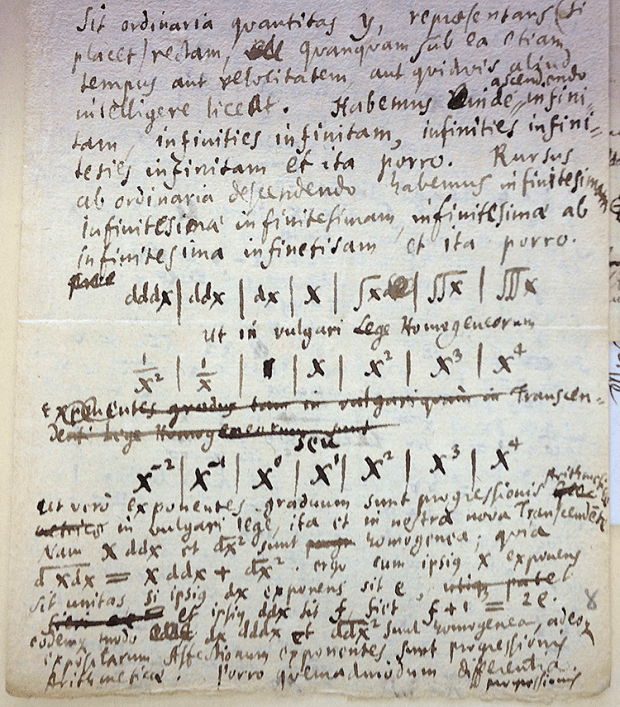 Sit ordinaria quantitas y, repræsentans (si
placet) rectam, quanquam sub ea etiam
tempus aut velocitatem aut quidvis aliud
ascendendo
intelligere liceat. Habemus inde infini-
tam, infinities infinitam, infinities infini-
ties infinitam et ita porro. Rursus
ab ordinaria descendendo habemus infinitesimam
infinitesima infinitesimam, infinitesima ab
infinitesima infinetisam et ita porro.
dddx | ddx | dx | x | ∫x | ∫∫x | ∫∫∫x
ut in vulgari Lege Homogeneorum
1/x² | 1/x | 1 | x | x² | x³ | x⁴
Exponentes gradus tam in vulgari quam in Transcen-
denti Lege Homogeneorum sunt
seu
x⁻² | x⁻¹ | x⁰ | x¹ | x² | x³ | x⁴
Arithmeti-
ut vero exponentes graduum sunt progressionis
in vulgari lege, ita et in nostra nova Transcendente
Nam x ddx et dx² sunt homogenea, quia
d xdx = x ddx + dx². ergo cum ipsig x exponens
sit unitas, si ipsig dx exponens sit e,
et ipsig ddx sit f, fiet f + 1 = 2e.
eodem modo dx dddx et ddx² sunt homogenea, adeoq
Affectionum exponentes sunt progressionis
Arithmeticæ. Porro quemadmodum differentia
progressionis
8